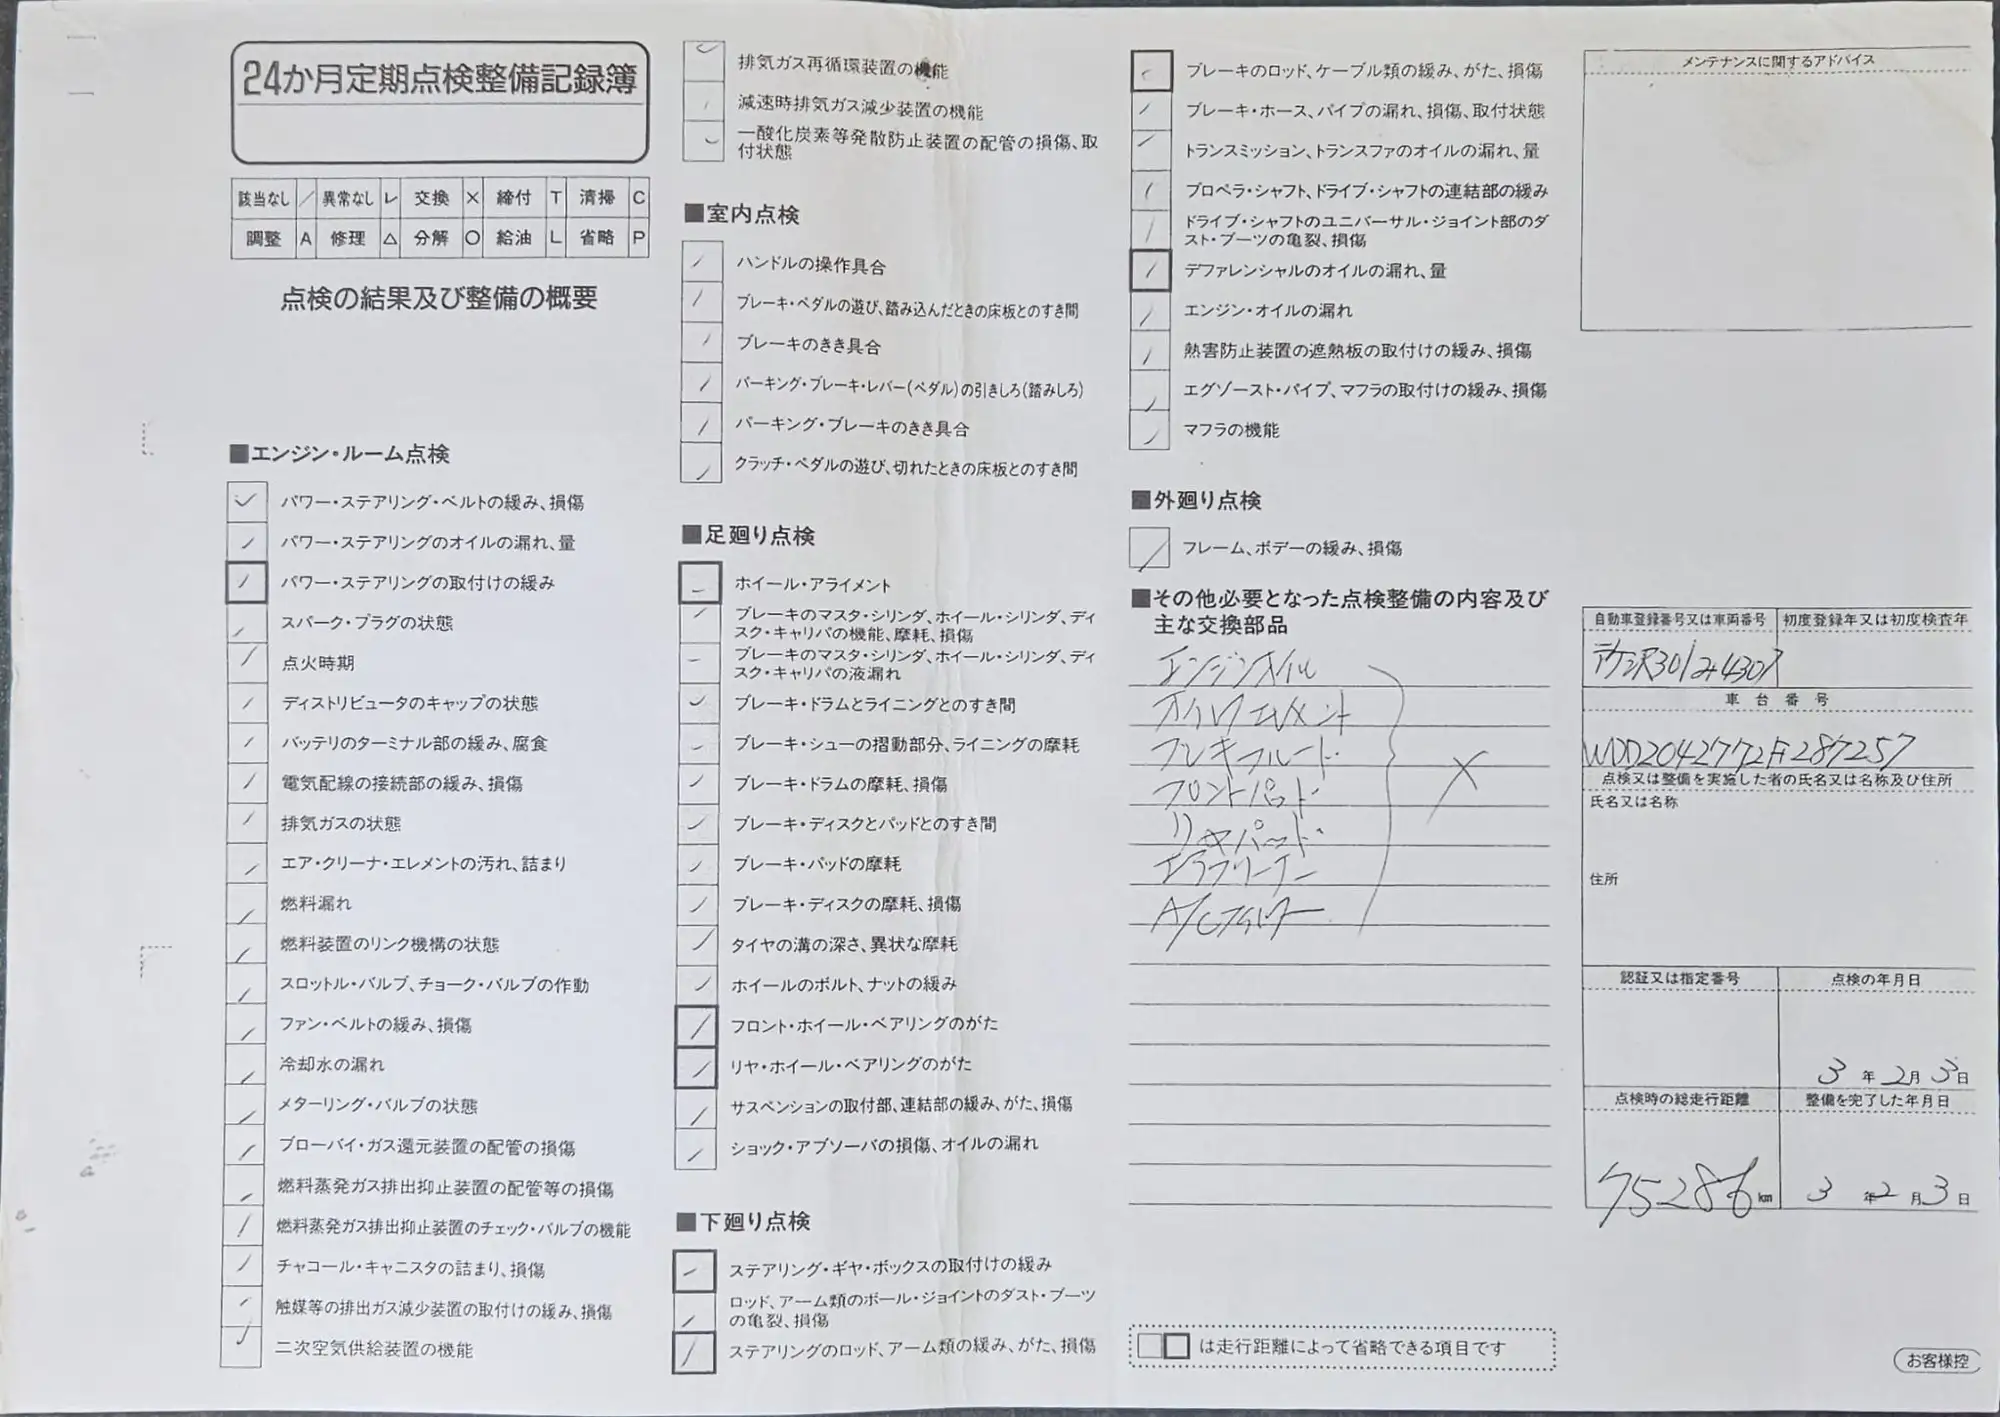 24か月定期点検整備記録簿
該当なし ／ 異常なし レ 交換 × 締付 T 清掃 C
調整 A 修理 △ 分解 ○ 給油 L 省略 P
点検の結果及び整備の概要
■エンジン・ルーム点検
パワー・ステアリング・ベルトの緩み、損傷
パワー・ステアリングのオイルの漏れ、量
パワー・ステアリングの取付けの緩み
スパーク・プラグの状態
点火時期
ディストリビュータのキャップの状態
バッテリのターミナル部の緩み、腐食
電気配線の接続部の緩み、損傷
排気ガスの状態
エア・クリーナ・エレメントの汚れ、詰まり
燃料漏れ
燃料装置のリンク機構の状態
スロットル・バルブ、チョーク・バルブの作動
ファン・ベルトの緩み、損傷
冷却水の漏れ
メターリング・バルブの状態
ブローバイ・ガス還元装置の配管の損傷
燃料蒸発ガス排出抑止装置の配管等の損傷
燃料蒸発ガス排出抑止装置のチェック・バルブの機能
チャコール・キャニスタの詰まり、損傷
触媒等の排出ガス減少装置の取付けの緩み、損傷
二次空気供給装置の機能
排気ガス再循環装置の機能
減速時排気ガス減少装置の機能
一酸化炭素等発散防止装置の配管の損傷、取
付状態
■室内点検
ハンドルの操作具合
ブレーキ・ペダルの遊び、踏み込んだときの床板とのすき間
ブレーキのきき具合
パーキング・ブレーキ・レバー(ペダル)の引きしろ(踏みしろ)
パーキング・ブレーキのきき具合
クラッチ・ペダルの遊び、切れたときの床板とのすき間
■足廻り点検
ホイール・アライメント
ブレーキのマスタ・シリンダ、ホイール・シリンダ、ディ
スク・キャリパの機能、摩耗、損傷
ブレーキのマスタ・シリンダ、ホイール・シリンダ、ディ
スク・キャリパの液漏れ
ブレーキ・ドラムとライニングとのすき間
ブレーキ・シューの摺動部分、ライニングの摩耗
ブレーキ・ドラムの摩耗、損傷
ブレーキ・ディスクとパッドとのすき間
ブレーキ・パッドの摩耗
ブレーキ・ディスクの摩耗、損傷
タイヤの溝の深さ、異状な摩耗
ホイールのボルト、ナットの緩み
フロント・ホイール・ベアリングのがた
リヤ・ホイール・ベアリングのがた
サスペンションの取付部、連結部の緩み、がた、損傷
ショック・アブソーバの損傷、オイルの漏れ
■下廻り点検
ステアリング・ギヤ・ボックスの取付けの緩み
ロッド、アーム類のボール・ジョイントのダスト・ブーツ
の亀裂、損傷
ステアリングのロッド、アーム類の緩み、がた、損傷
ブレーキのロッド、ケーブル類の緩み、がた、損傷
ブレーキ・ホース、パイプの漏れ、損傷、取付状態
トランスミッション、トランスファのオイルの漏れ、量
プロペラ・シャフト、ドライブ・シャフトの連結部の緩み
ドライブ・シャフトのユニバーサル・ジョイント部のダ
スト・ブーツの亀裂、損傷
デファレンシャルのオイルの漏れ、量
エンジン・オイルの漏れ
熱害防止装置の遮熱板の取付けの緩み、損傷
エグゾースト・パイプ、マフラの取付けの緩み、損傷
マフラの機能
■外廻り点検
フレーム、ボデーの緩み、損傷
■その他必要となった点検整備の内容及び
主な交換部品
エンジンオイル
オイルエレメント
ブレーキフルード
フロントパッド
リヤパッド
エアクリーナー
A/Cフィルター
×
は走行距離によって省略できる項目です
メンテナンスに関するアドバイス
自動車登録番号又は車両番号 初度登録年又は初度検査年
301み4307
車台番号
WDD2042772F287257
点検又は整備を実施した者の氏名又は名称及び住所
氏名又は名称
住所
認証又は指定番号 点検の年月日
3年2月3日
点検時の総走行距離 整備を完了した年月日
75286km 3年2月3日
お客様控